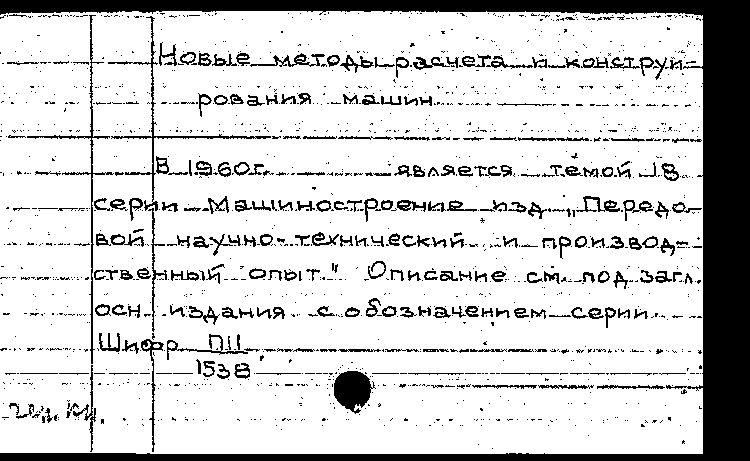 Новые методы расчета и конструи-
рования машин
В 1960г. является темой 18
серии Машиностроение изд. „Передо-
вой научно-технический и производ-
ственный опыт." Описание см. под загл.
осн. издания с обозначением серии.
Шифр ПII
1538